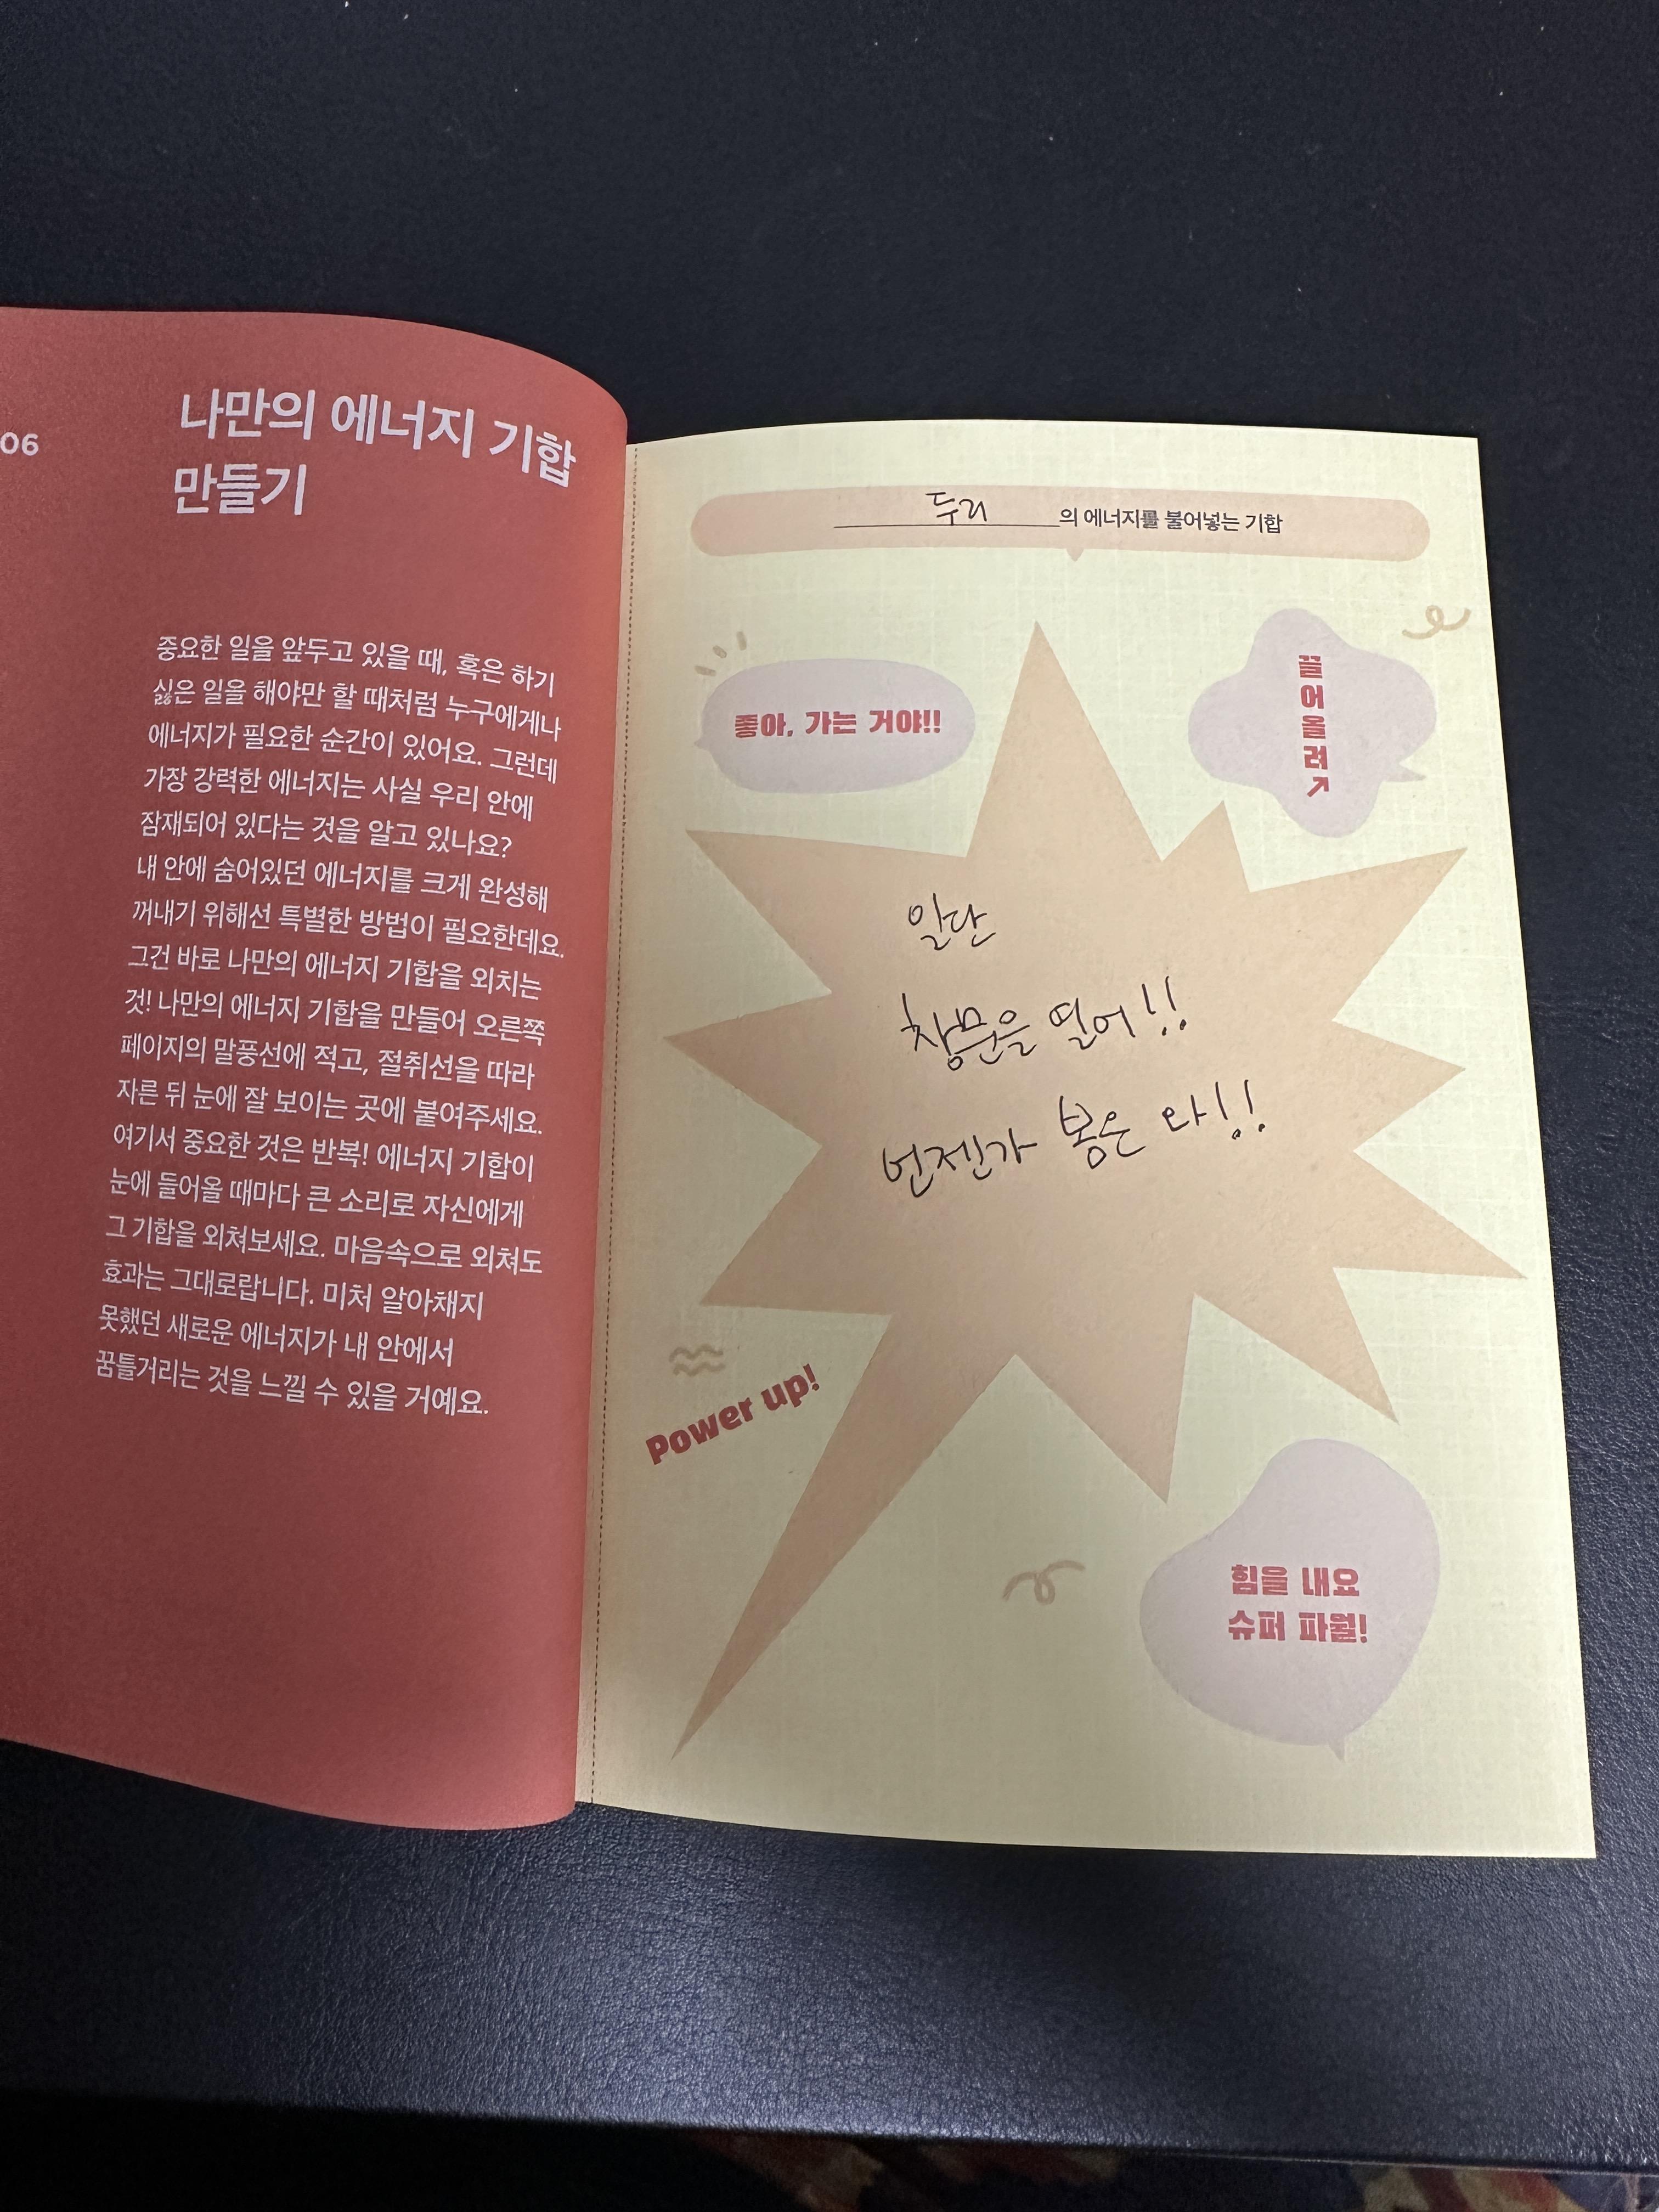 06
나만의 에너지 기합
만들기
중요한 일을 앞두고 있을 때, 혹은 하기
싫은 일을 해야만 할 때처럼 누구에게나
에너지가 필요한 순간이 있어요. 그런데
가장 강력한 에너지는 사실 우리 안에
잠재되어 있다는 것을 알고 있나요?
내 안에 숨어있던 에너지를 크게 완성해
꺼내기 위해선 특별한 방법이 필요한데요.
그건 바로 나만의 에너지 기합을 외치는
것! 나만의 에너지 기합을 만들어 오른쪽
페이지의 말풍선에 적고, 절취선을 따라
자른 뒤 눈에 잘 보이는 곳에 붙여주세요.
여기서 중요한 것은 반복! 에너지 기합이
눈에 들어올 때마다 큰 소리로 자신에게
그 기합을 외쳐보세요. 마음속으로 외쳐도
효과는 그대로랍니다. 미처 알아채지
못했던 새로운 에너지가 내 안에서
꿈틀거리는 것을 느낄 수 있을 거예요.
두리의 에너지를 불어넣는 기합
좋아, 가는 거야!!
끌어올려↗
일단
창문을 열어!!
언젠가 봄은 와!!
Power up!
힘을 내요
슈퍼 파월!